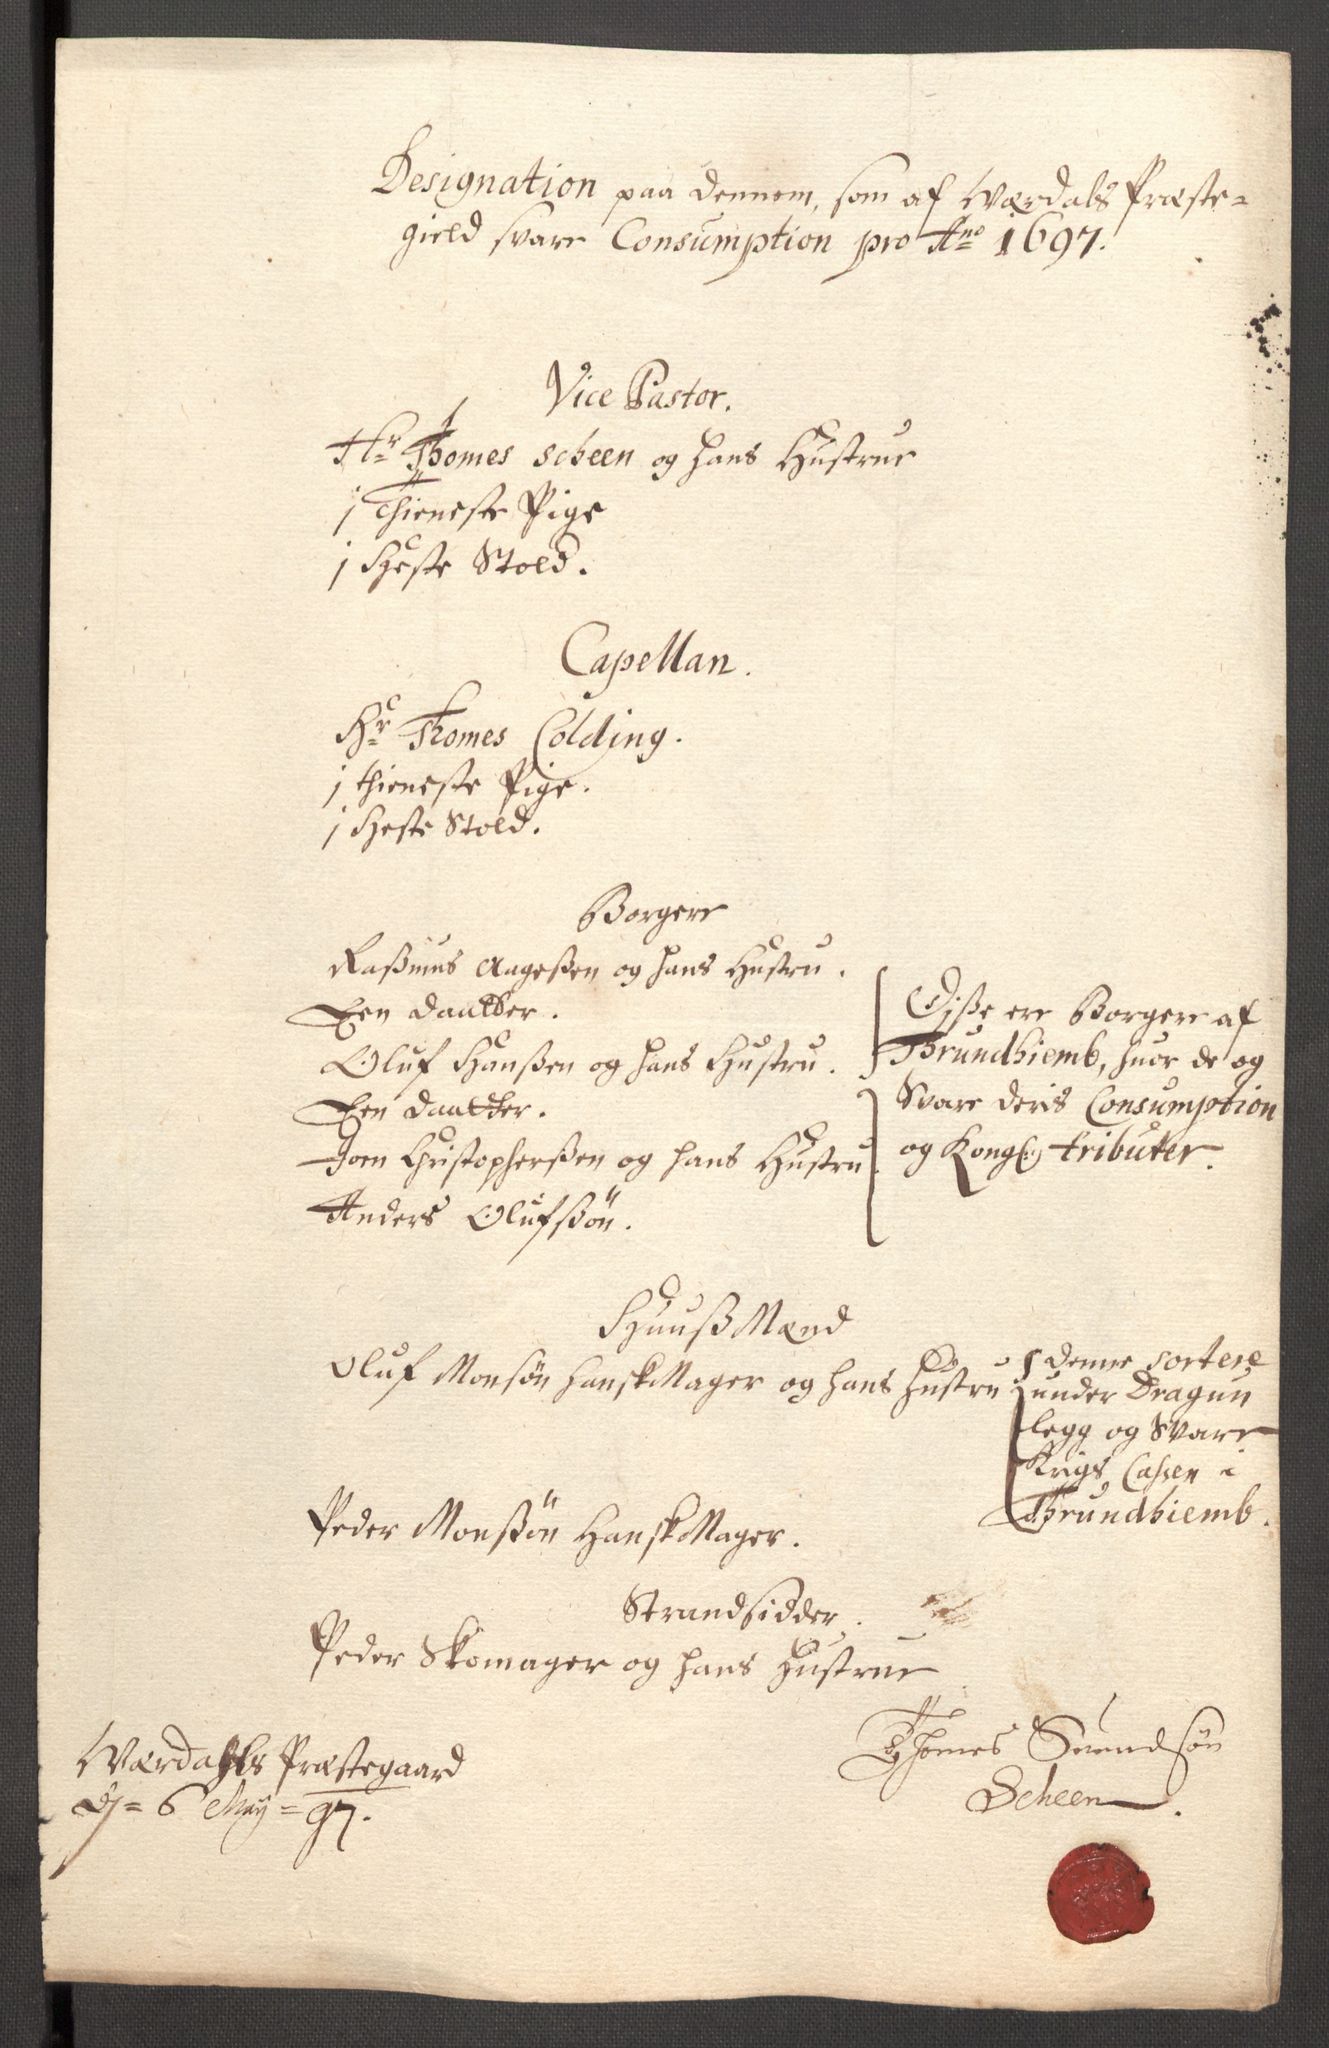 Designation paa dennem, som af Værdals Præste=
gield svare Consumption pro Ano 1697.
Vice Pastor.
Hr Thomes Scheen og hans Hustrue
1 Thieneste Pige
1 Heste Stold.
Capellan.
Hr Thomes Colding.
1 thieneste Pige.
1 Heste Stold.
Borgere
Raßmus Aageßen og hans Hustru.
Een daatter.
Oluf Hanßen og hans Hustru.
Een daatter.
Joen Christopherßen og hans Hustru.
Anders Olufßön.
Diße ere Borgere af
Thrundhiemb, huor de og
Svare deris Consumption
og Kongl: tributer.
Huuß Mænd
Oluf Monsön HanskMager og hans Hustru
denne sortere
under Dragun
legg og Svare
Krigs Caßen i
Thrundhiemb.
Peder Monßön HanskMager.
Strandsidder.
Peder Skomager og hans Hustrue
Værdahls Præstegaard
D= 6 May = 97.
Thomes Suendsön
Scheen.